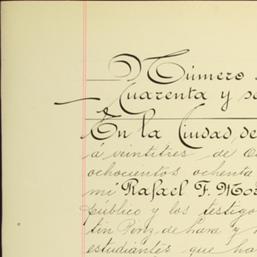 Número
Cuarenta y se
En la Ciudad de
á veintitres de O
ochocientos ochenta
mí Rafael F. Mo
público y los testigo
tin Perez de Lara y
estudiantes que ha